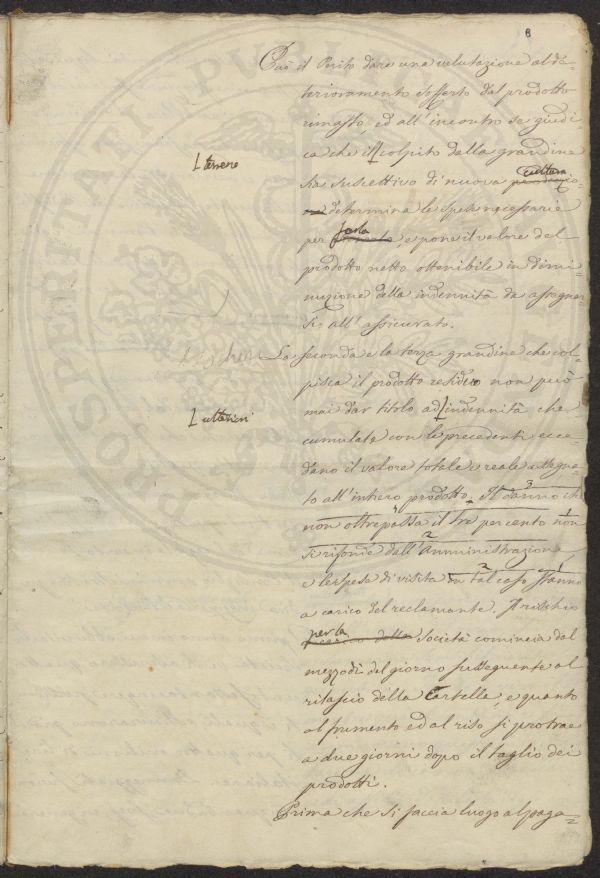 8
Può il Perito dare una valutazione al de=
terioramento sofferto dal prodotto
rimasto, ed all'incontro se giudi=
ca che il colpito dalla grandine
L terreno
sia suscettivo di nuova produzio= cultura
ne determina le spese necessarie
per farla e pone il valore del
prodotto netto ottenibile in dimi=
nuzione della indennità da assegnar=
si all'assicurato.
La seconda e la terza grandine che col=
pisca il prodotto residuo non può
mai dar titolo ad indennità che
L ulteriori
cumulate con le precedenti ecce=
dano il valore totale e reale assegna=
to all'intiero prodotto. Il danno che
non oltrepassa il tre per cento non
si rifonde dall'Amministrazione,
e le spese di visita in tal caso stanno
a carico del reclamante. Il rischio
per la Società comincia dal
mezzodì del giorno susseguente al
rilascio della Cartella, e quanto
al frumento ed al riso si protrae
a due giorni dopo il taglio dei
prodotti.
Prima che si faccia luogo al paga=